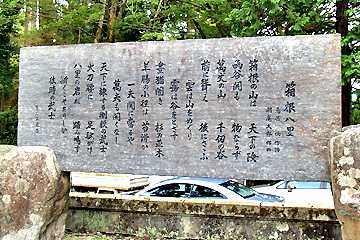 箱根八里
鳥居 忱 作詞
瀧廉太郎 作曲
箱根の山は 天下の険
函谷関も 物ならず
萬丈の山 千仞の谷
前に聳え 後にさゝふ
雲は山をめぐり
霧は谷をとざす
昼猶闇き 杉の並木
羊腸の小径は 苔滑か
一夫関に当るや
萬夫も開くなし
天下に旅する剛毅の武士
大刀腰に 足駄がけ
八里の岩根 踏み鳴す
斯くこそありしか
往時の武士